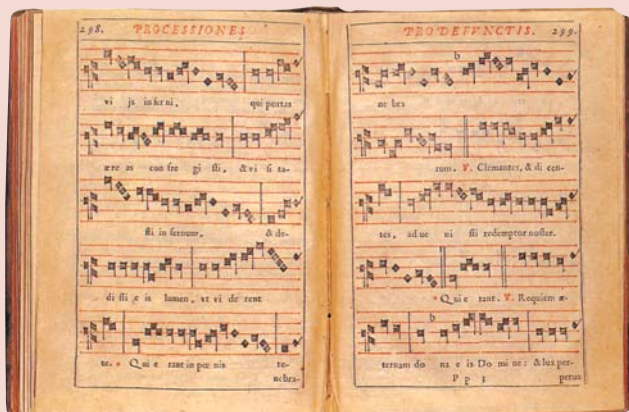 298. PROCESSIONES
vi js inferni, qui portas
ære as con fre gi sti, & vi si ta-
sti in fernum, & de-
di sti e is lumen, vt vi de rent
te. * Qui e rant in pœ nis te-
nebra-
PRO DEFVNCTIS. 299.
b
ne bes
rum. V. Clamantes, & di cen-
tes, ad ue ni sti redemptor noster.
* Qui e rant. V. Requiem æ-
b
ternam do na e is Do mi ne: & lux per-
P p 3 petua